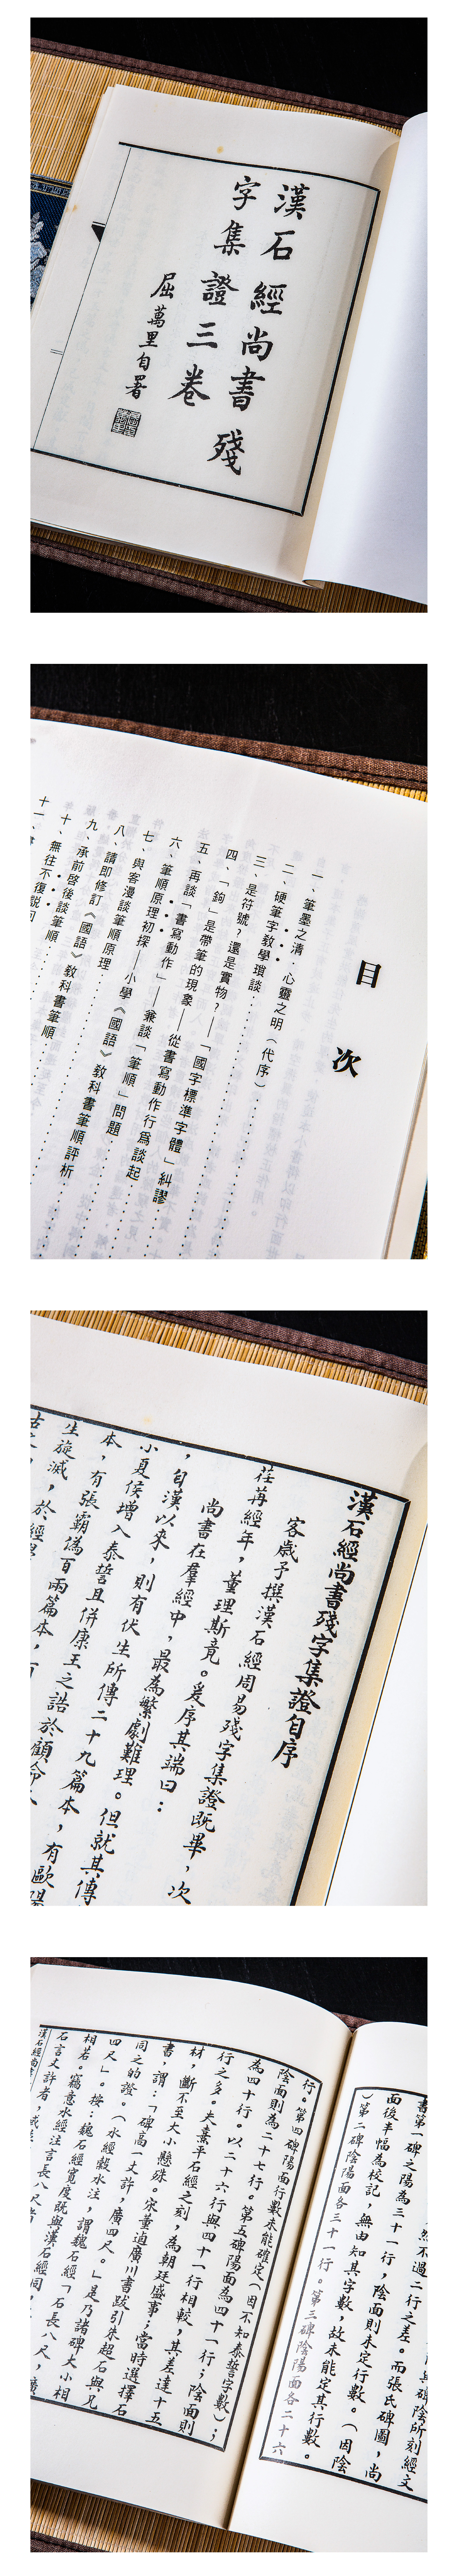 漢石經尚書殘
字集證三卷
屈萬里自署
目次
一、筆墨之清．心靈之明（代序）
二、硬筆字教學瑣談
三、是符號？還是實物？——「國字標準字體」糾謬
四、「鉤」是帶筆的現象——從書寫動作行為談起
五、再談「書寫動作」——兼談「筆順」問題
六、筆順原理初探——小學《國語》教科書筆順評析
七、與客漫談筆順原理
八、請即修訂《國語》教科書筆順
九、承前啓後談筆順
十、無往不復說回
十一、
漢石經尚書殘字集證自序
客歲予撰漢石經周易殘字集證既畢，次
荏苒經年，董理斯竟。爰序其端曰：
尚書在羣經中，最為繁劇難理。但就其傳
，自漢以來，則有伏生所傳二十九篇本，有歐陽
小夏侯增入泰誓且併康王之誥於顧命
本，有張霸偽百兩篇本，
生旋滅，於經
書第一碑之陽為三十一行，陰面則未定行數。（因陰
面後半幅為校記，無由知其字數，故未能定其行數。
）第二碑陰陽面各三十一行。第三碑陰陽面各二十六
行。第四碑陽面行數未能確定（因不知泰誓字數）；
陰面則為二十七行。第五碑陽面為四十一行；陰面則
為四十行。以二十六行與四十一行相較，其差達十五
行之多。夫熹平石經之刻，為朝廷盛事；當時選擇石
材，斷不至大小懸殊。宋董逌廣川書跋引朱超石與兄
書，謂：「碑高一丈許，廣四尺。」是乃諸碑大小相
同之的證。（水經穀水注，謂魏石經「石長八尺，廣
四尺」。按：魏石經寬度既與漢石經同，
相若。竊意水經注言長八尺者，
石言丈許者，或